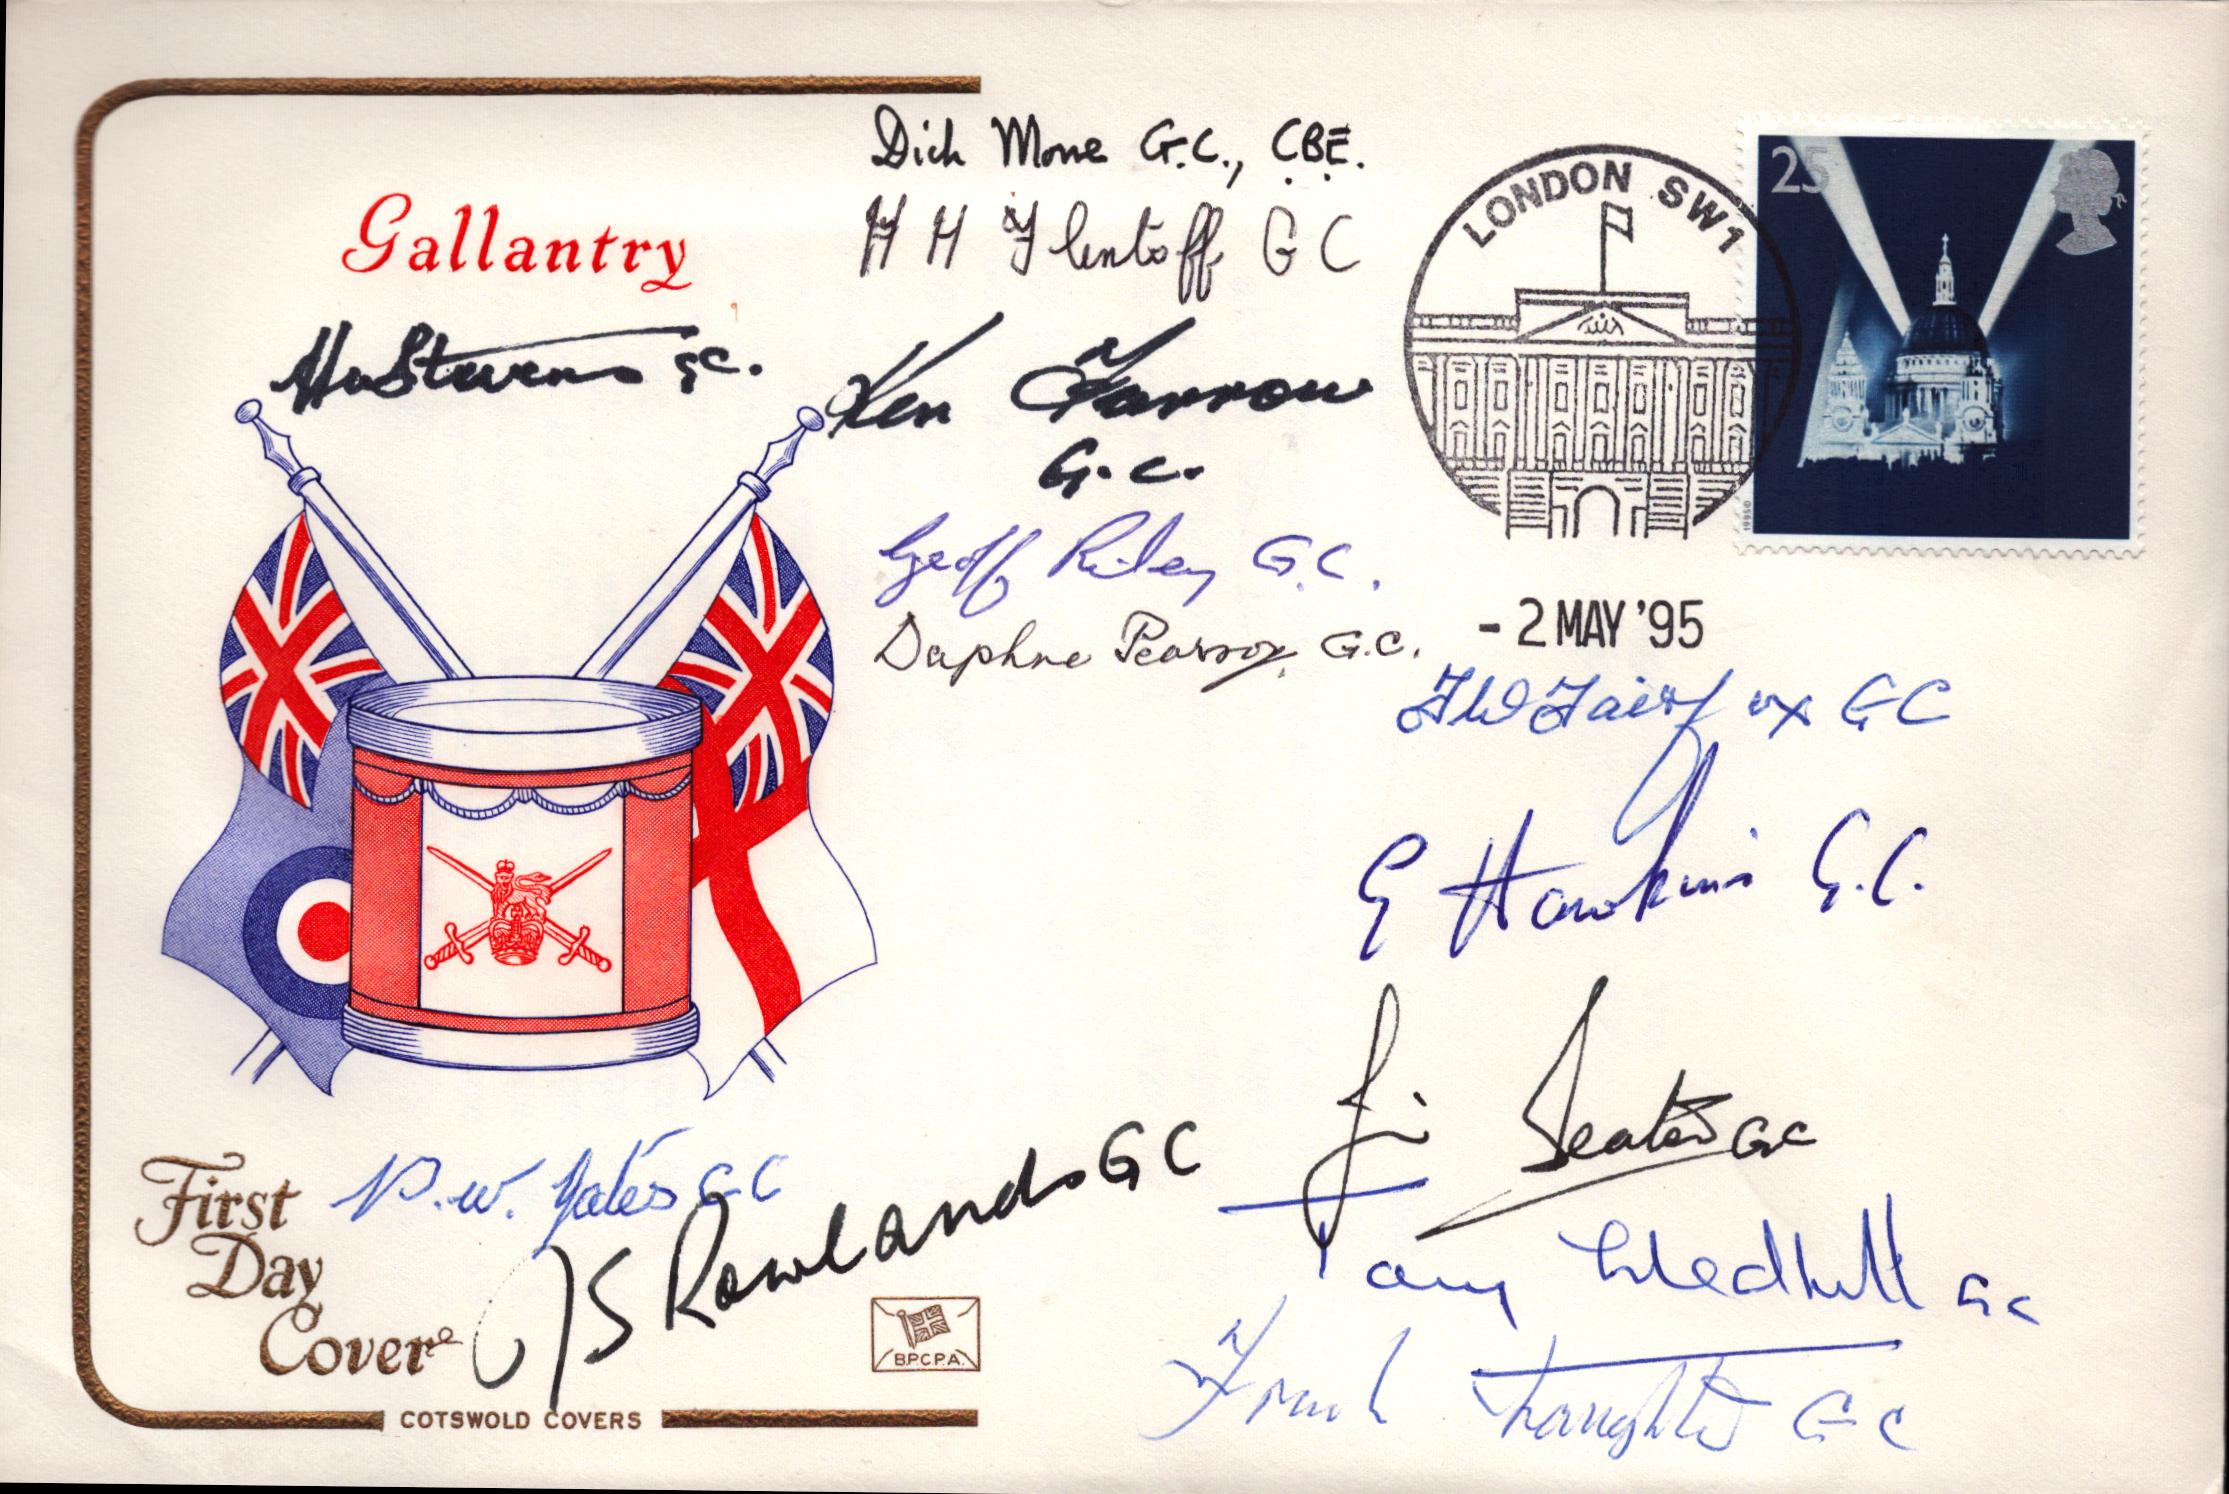 Dick Moore G.C., CBE.
H H Flintoff GC
LONDON SW1
25
Gallantry
H W Stevens GC.
Ken Farrow
G.C.
Geoff Riley G.C.
Daphne Pearson, G.C.
- 2 MAY '95
F W Fairfax GC
E Hawkins G.C.
Jim Beaton GC
P.W. Yates GC
J S Rowlands GC
Tony Gledhill GC
Frank Naughton GC
First
Day
Cover
B.P.C.P.A.
COTSWOLD COVERS